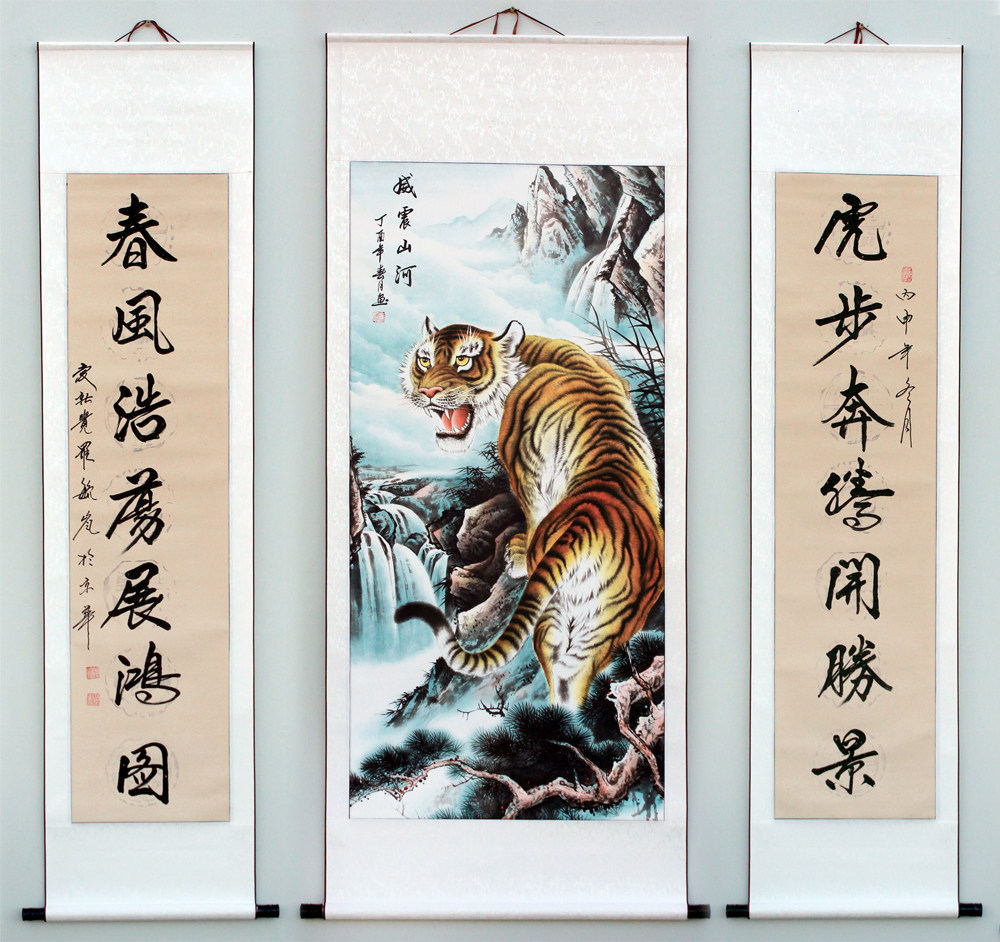 虎步奔騰開勝景
丙申年冬月
威震山河
丁酉年春月画
春風浩蕩展鴻圖
愛新覺羅毓嵐於京華